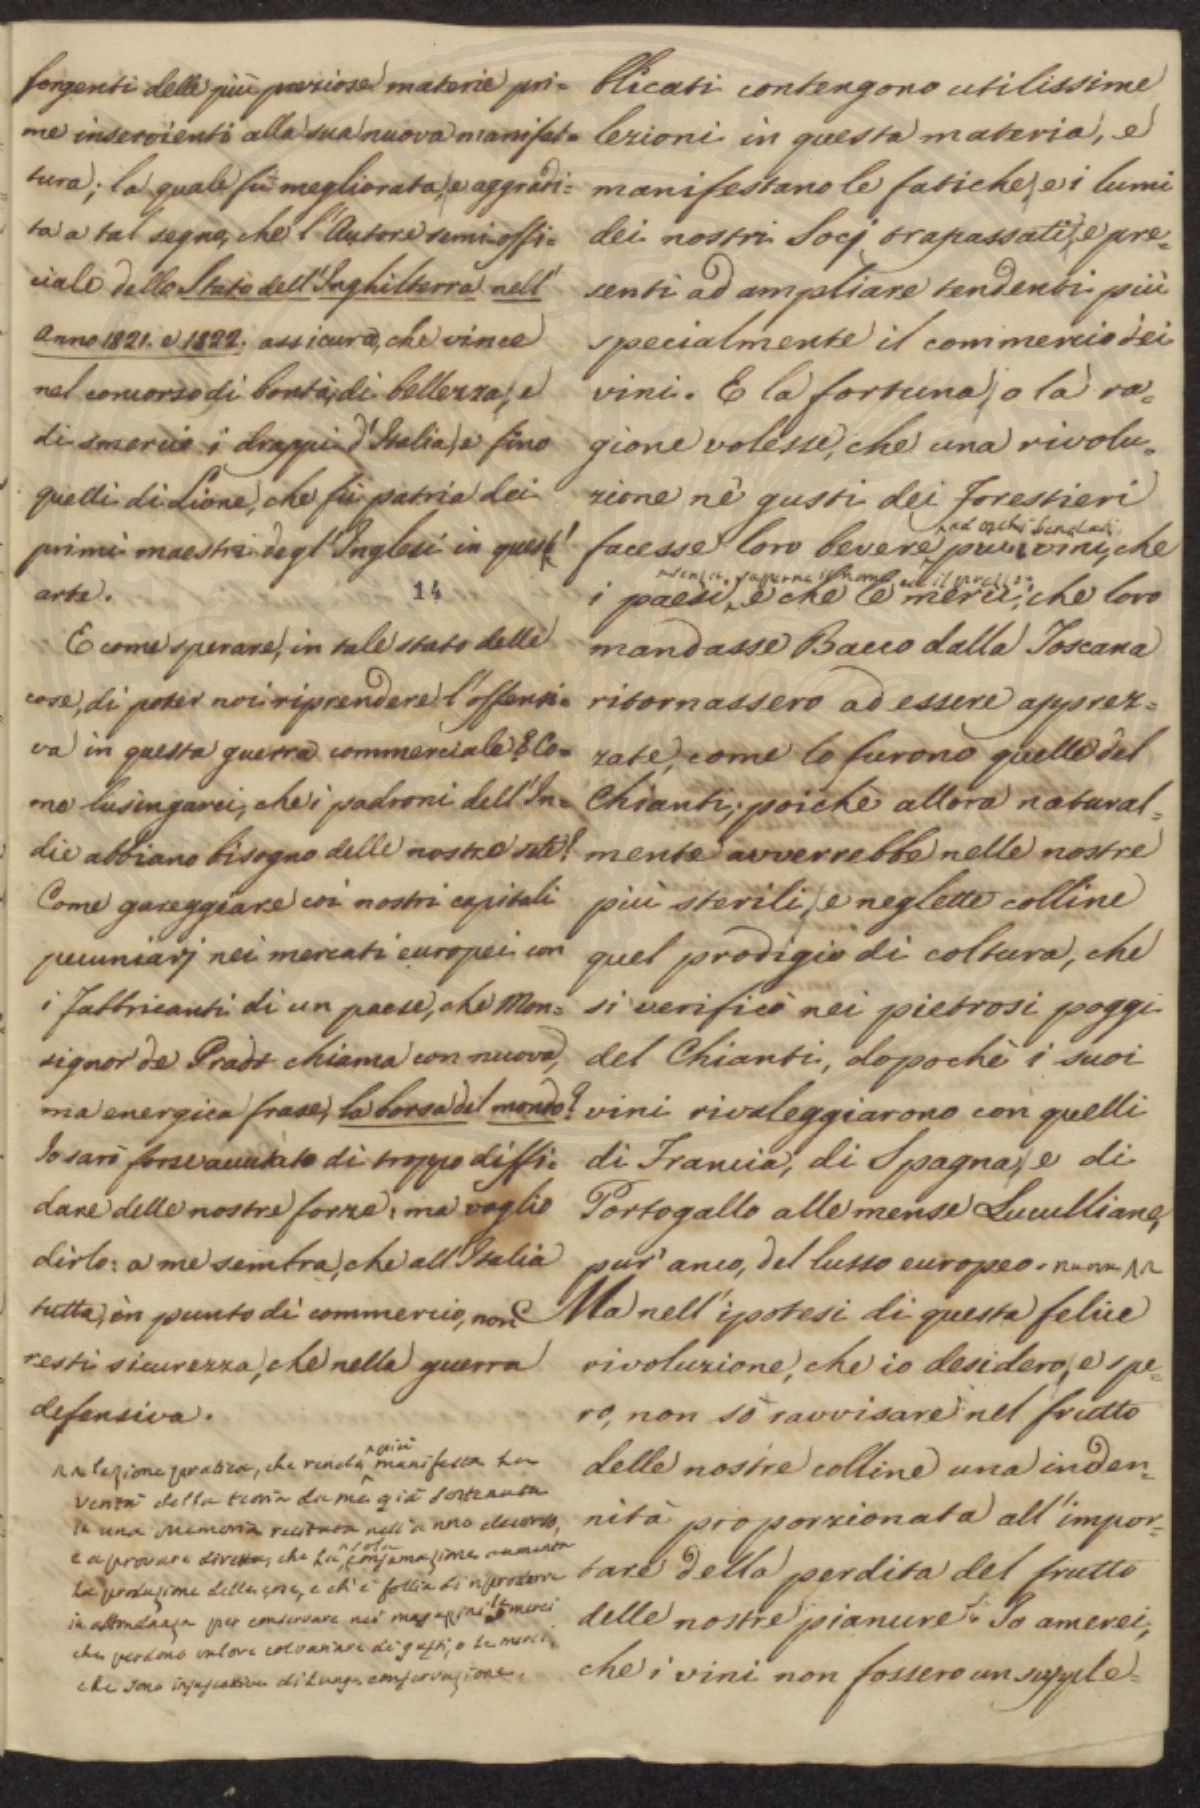 sorgenti delle più preziose materie pri=
me inservienti alla sua nuova manifat=
tura; la quale fù megliorata, e aggradi=
ta a tal segno, che l'Autore semi offi=
ciale dello Stato dell'Inghilterra nell'
anno 1821. e 1822. assicura, che vince
nel concorso di bontà, di bellezza, e
di smercio i drappi d'Italia, e fino
quelli di Lione, che fù patria dei
primi maestri degl'Inglesi in quest'
arte. 14
E come sperare, in tale stato delle
cose, di poter noi riprendere l'offensi=
va in questa guerra commerciale? Co=
me lusingarci, che i padroni dell'In=
die abbiano bisogno delle nostre sete?
Come gareggiare coi nostri capitali
pecuniarj nei mercati europei con
i fabbricanti di un paese, che Mon=
signor de Pradt chiama con nuova,
ma energica frase, la borsa del mondo?
Io sarò forse accusato di troppo diffi=
dare delle nostre forze, ma voglio
dirlo: a me sembra, che all'Italia
tutta, in punto di commercio, non
resti sicurezza, che nella guerra
defensiva.
lezione pratica, che rende più manifesta la
verità della teoria da me già sostenuta
in una Memoria recitata nell'anno decorso,
e a provare diretta, che la sola consumazione aumenta
la produzione delle cose, e ch'è follia di riprodurre
in abbondanza per conservare nei magazzini le merci
che perdono valore col variare di gusti, o le merci,
che sono di lunga conservazione.
blicati contengono utilissime
lezioni in questa materia, e
manifestano le fatiche, e i lumi
dei nostri Socj trapassati, e pre=
senti ad ampliare tendenti più
specialmente il commercio dei
vini. E la fortuna, o la ra=
gione volesse, che una rivolu=
zione nè gusti dei forestieri
facesse loro bevere ad occhi bendati più vini, che
i paesi, senza saperne il nome ed il prezzo, e che le merci, che loro
mandasse Bacco dalla Toscana
ritornassero ad essere apprez=
zate, come lo furono quelle del
Chianti; poichè allora natural=
mente avverrebbe nelle nostre
più sterili, e neglette colline
quel prodigio di coltura, che
si verificò nei pietrosi poggi
del Chianti, dopochè i suoi
vini rivaleggiarono con quelli
di Francia, di Spagna, e di
Portogallo alle mense Luculliane,
pur'anco, del lusso europeo.
Ma nell'ipotesi di questa felice
rivoluzione, che io desidero, e spe=
ro, non sò ravvisare nel frutto
delle nostre colline una inden=
nità proporzionata all'impor=
tare della perdita del frutto
delle nostre pianure. Io amerei,
che i vini non fossero un supple=